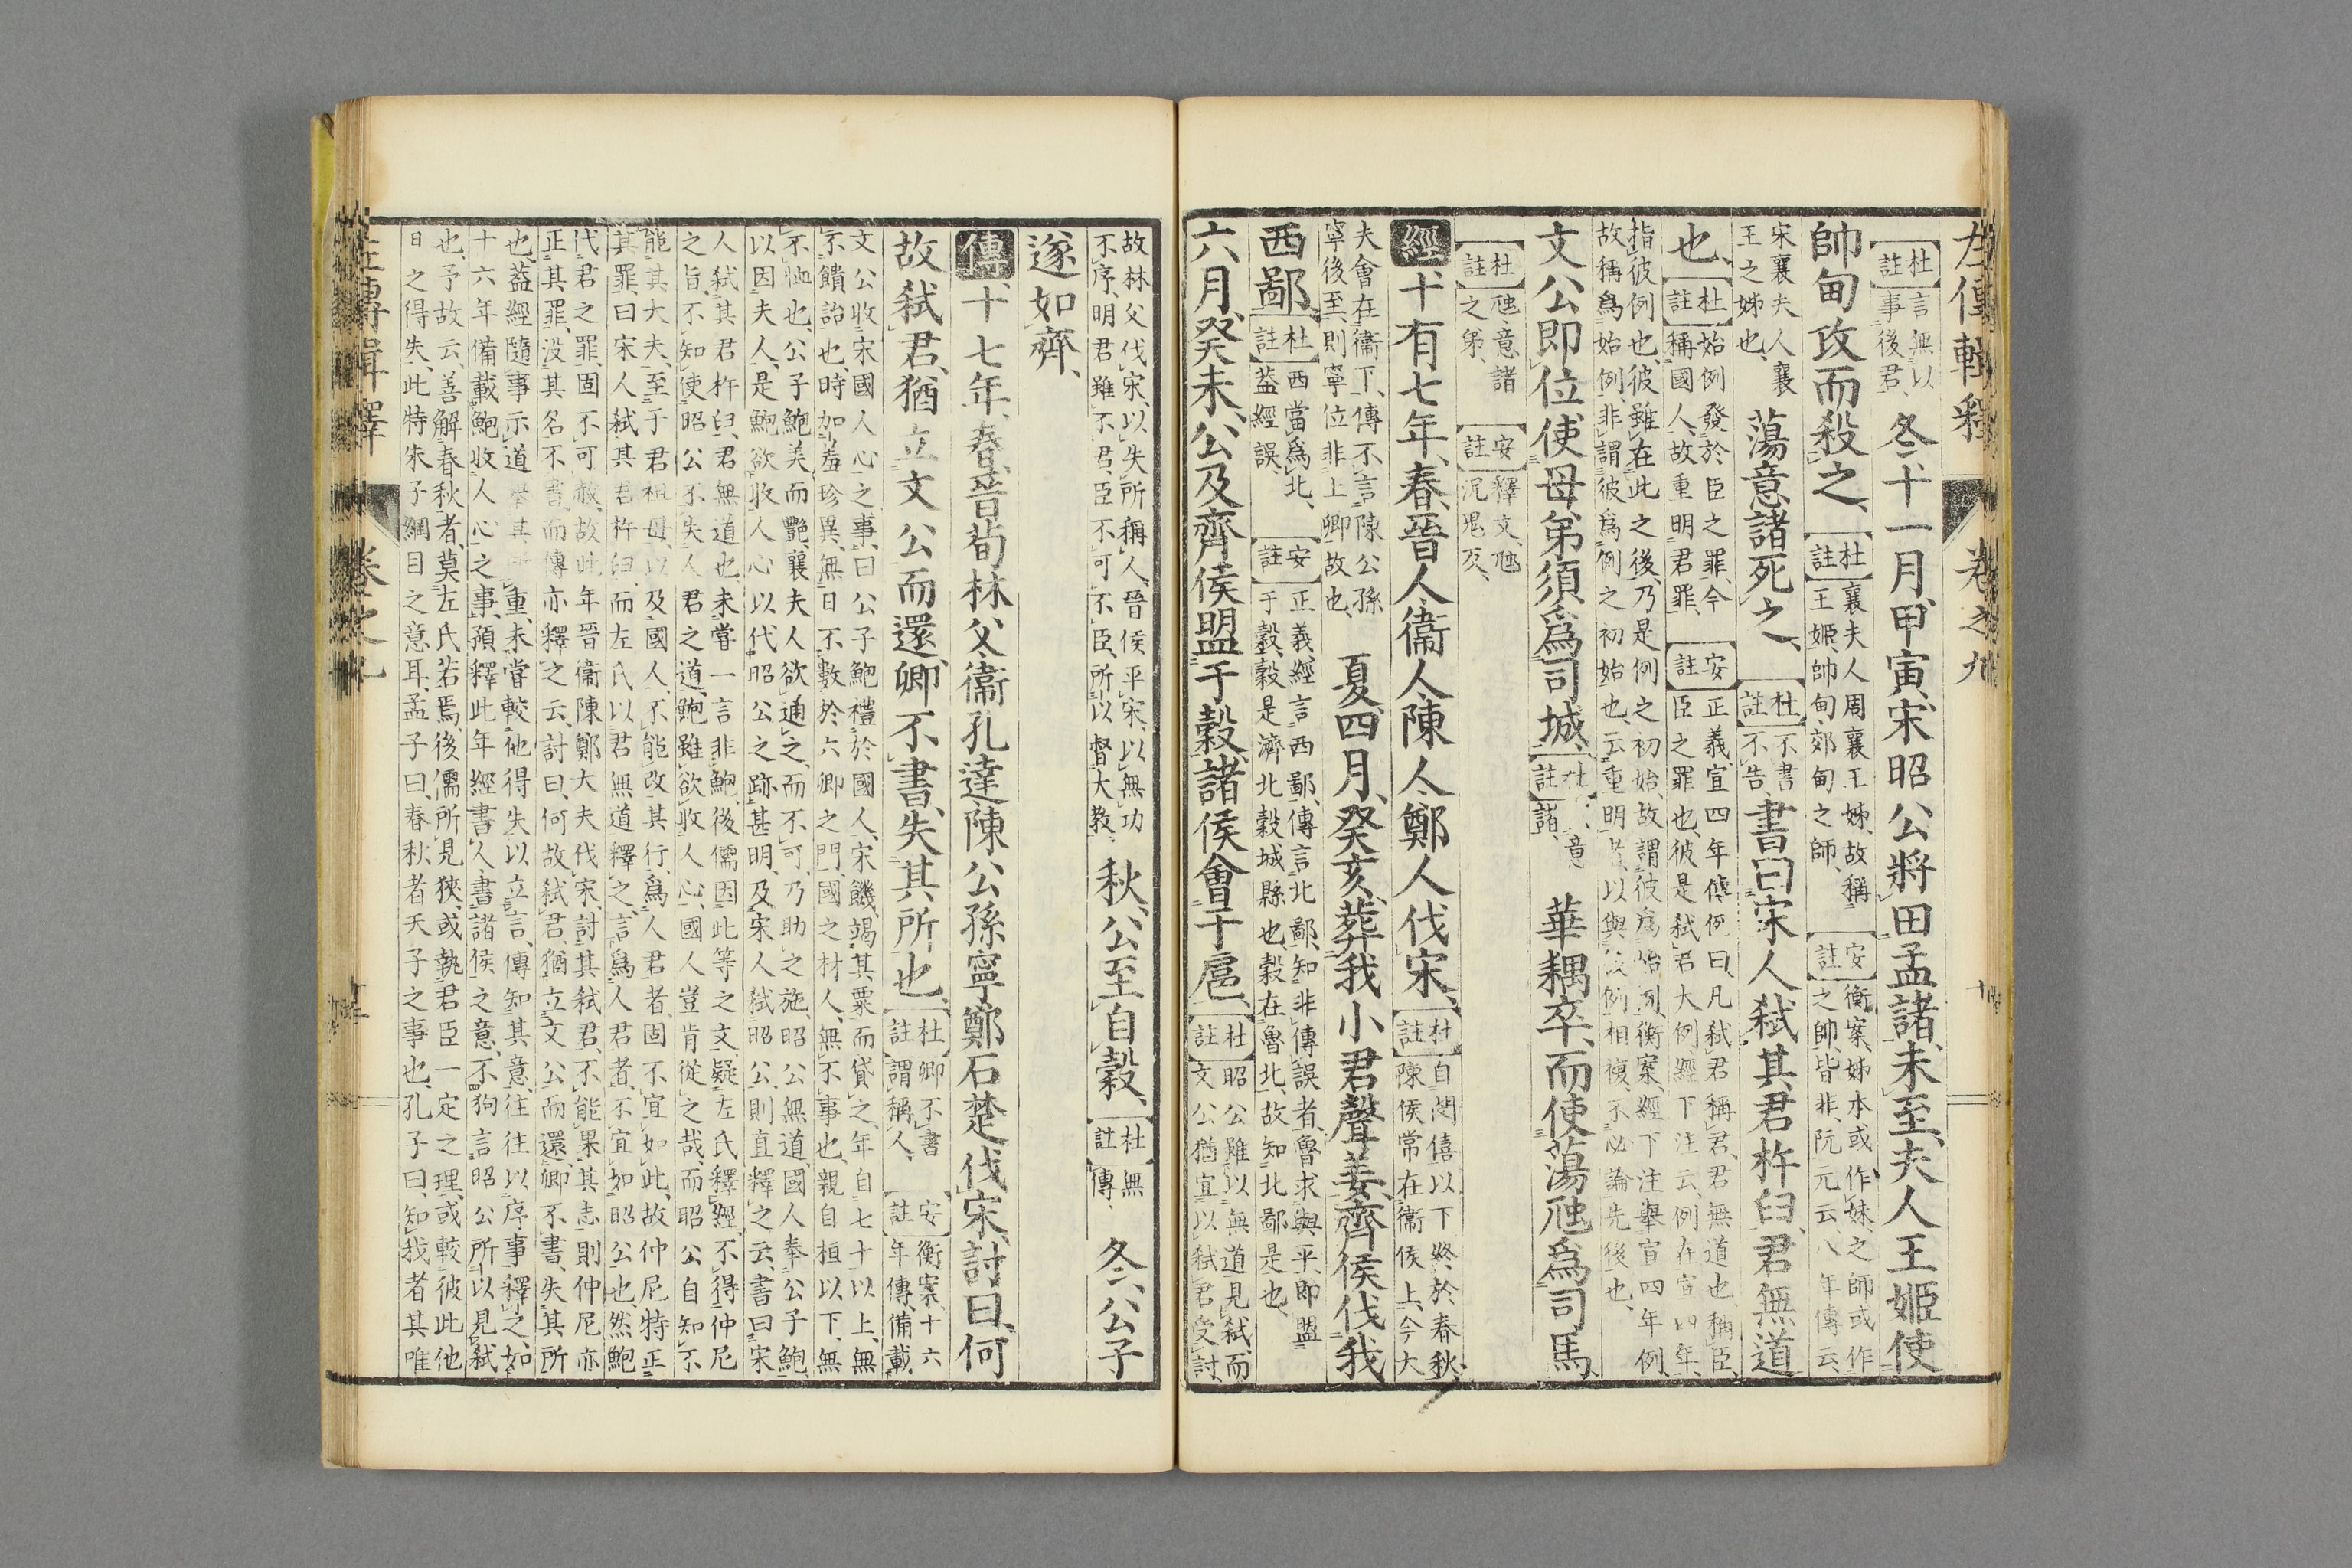 左傳輯釋 卷之九
杜註 言無以事後君、 冬、十一月、甲寅、宋昭公將田孟諸、未至、夫人王姬使
帥甸攻而殺之、 杜註 襄夫人周襄王姊、故稱王姬、帥甸、郊甸之師、 安註 衡案、姊本或作妹、之師或作之帥、皆非、阮元云、八年傳云、
宋襄夫人襄王之姊也、 蕩意諸死之、 杜註 不書不告、 書曰宋人弑其君杵臼、君無道
也、 杜註 始例發於臣之罪、今稱國人、故重明君罪、 安註 正義、宣四年傳例曰、凡弑君稱君、君無道也、稱臣、臣之罪也、彼是弑君大例、經下注云、例在宣四年、
指彼例也、彼雖在此之後、乃是例之初始、故謂彼爲始例、衡案、經下注舉宣四年例、故稱爲始例、非謂彼爲例之初始也、云重明者以與例相複、不必論先後也、
文公即位、使母弟須爲司城、 杜註 意諸 華耦卒、而使蕩虺爲司馬、
杜註 虺意諸之弟、 安註 釋文、虺況鬼反、
經 十有七年、春、晉人、衞人、陳人、鄭人伐宋、 杜註 自閔僖以下、終於春秋、陳侯常在衞侯上、今大
夫會在衞下、傳不言陳公孫寧後至、則寧位非上卿故也、 夏、四月、癸亥、葬我小君聲姜、齊侯伐我
西鄙、 杜註 西當爲北、蓋經誤、 安註 正義、經言西鄙、傳言北鄙、知非傳誤者、魯求與平、即盟于穀、穀是濟北穀城縣也、穀在魯北、故知北鄙是也、
六月、癸未、公及齊侯盟于穀、諸侯會于扈、 杜註 昭公雖以無道見弑、而文公猶宜以弑君受討、
故林父伐宋、以失所稱人、晉侯平宋、以無功不序、明君雖不君、臣不可不臣、所以督大教、 秋、公至自穀、 杜註 無傳、 冬、公子
遂如齊、
傳 十七年、春、晉荀林父、衞孔達、陳公孫寧、鄭石楚伐宋、討曰、何
故弑君、猶立文公而還、卿不書、失其所也、 杜註 卿不書、謂稱人、 安註 衡案、十六年傳、備載
文公收宋國人心之事、曰公子鮑禮於國人、宋饑、竭其粟而貸之、年自七十以上、無
不饋詒也、時加羞珍異、無日不數於六卿之門、國之材人、無不事也、親自桓以下、無
不恤也、公子鮑美而豔、襄夫人欲通之、而不可、乃助之施、昭公無道、國人奉公子鮑、
以因夫人、是鮑欲收人心以代昭公之跡甚明、及宋人弑昭公、則直釋之云、書曰宋
人弑其君杵臼、君無道也、未嘗一言非鮑、後儒因此等之文、疑左氏釋經、不得仲尼
之旨、不知使昭公不失人君之道、鮑雖欲收人心、國人豈肯從之哉、而昭公自知不
能其大夫、至于君祖母、以及國人、不能改其行、爲人君者、固不宜如此、故仲尼特正
其罪曰宋人弑其君杵臼、而左氏以君無道釋之、言爲人君者、不宜如昭公也、然鮑
代君之罪、固不可赦、故此年晉衞陳鄭大夫伐宋、討其弑君、不能果其志、則仲尼亦
正其罪、沒其名不書、而傳亦釋之云、討曰、何故弑君、猶立文公而還、卿不書、失其所
也、蓋經隨事示道、擧其所重、未嘗較他得失以立言、傳知其意、往往以序事釋之、如
十六年備載鮑收人心之事、預釋此年經書人、書諸侯之意、不徇言昭公所以見弑
也、予故云、善解春秋者、莫左氏若焉、後儒所見狹、或執君臣一定之理、或較彼此他
日之得失、此特朱子綱目之意耳、孟子曰、春秋者天子之事也、孔子曰、知我者其唯
左傳輯釋 卷之九